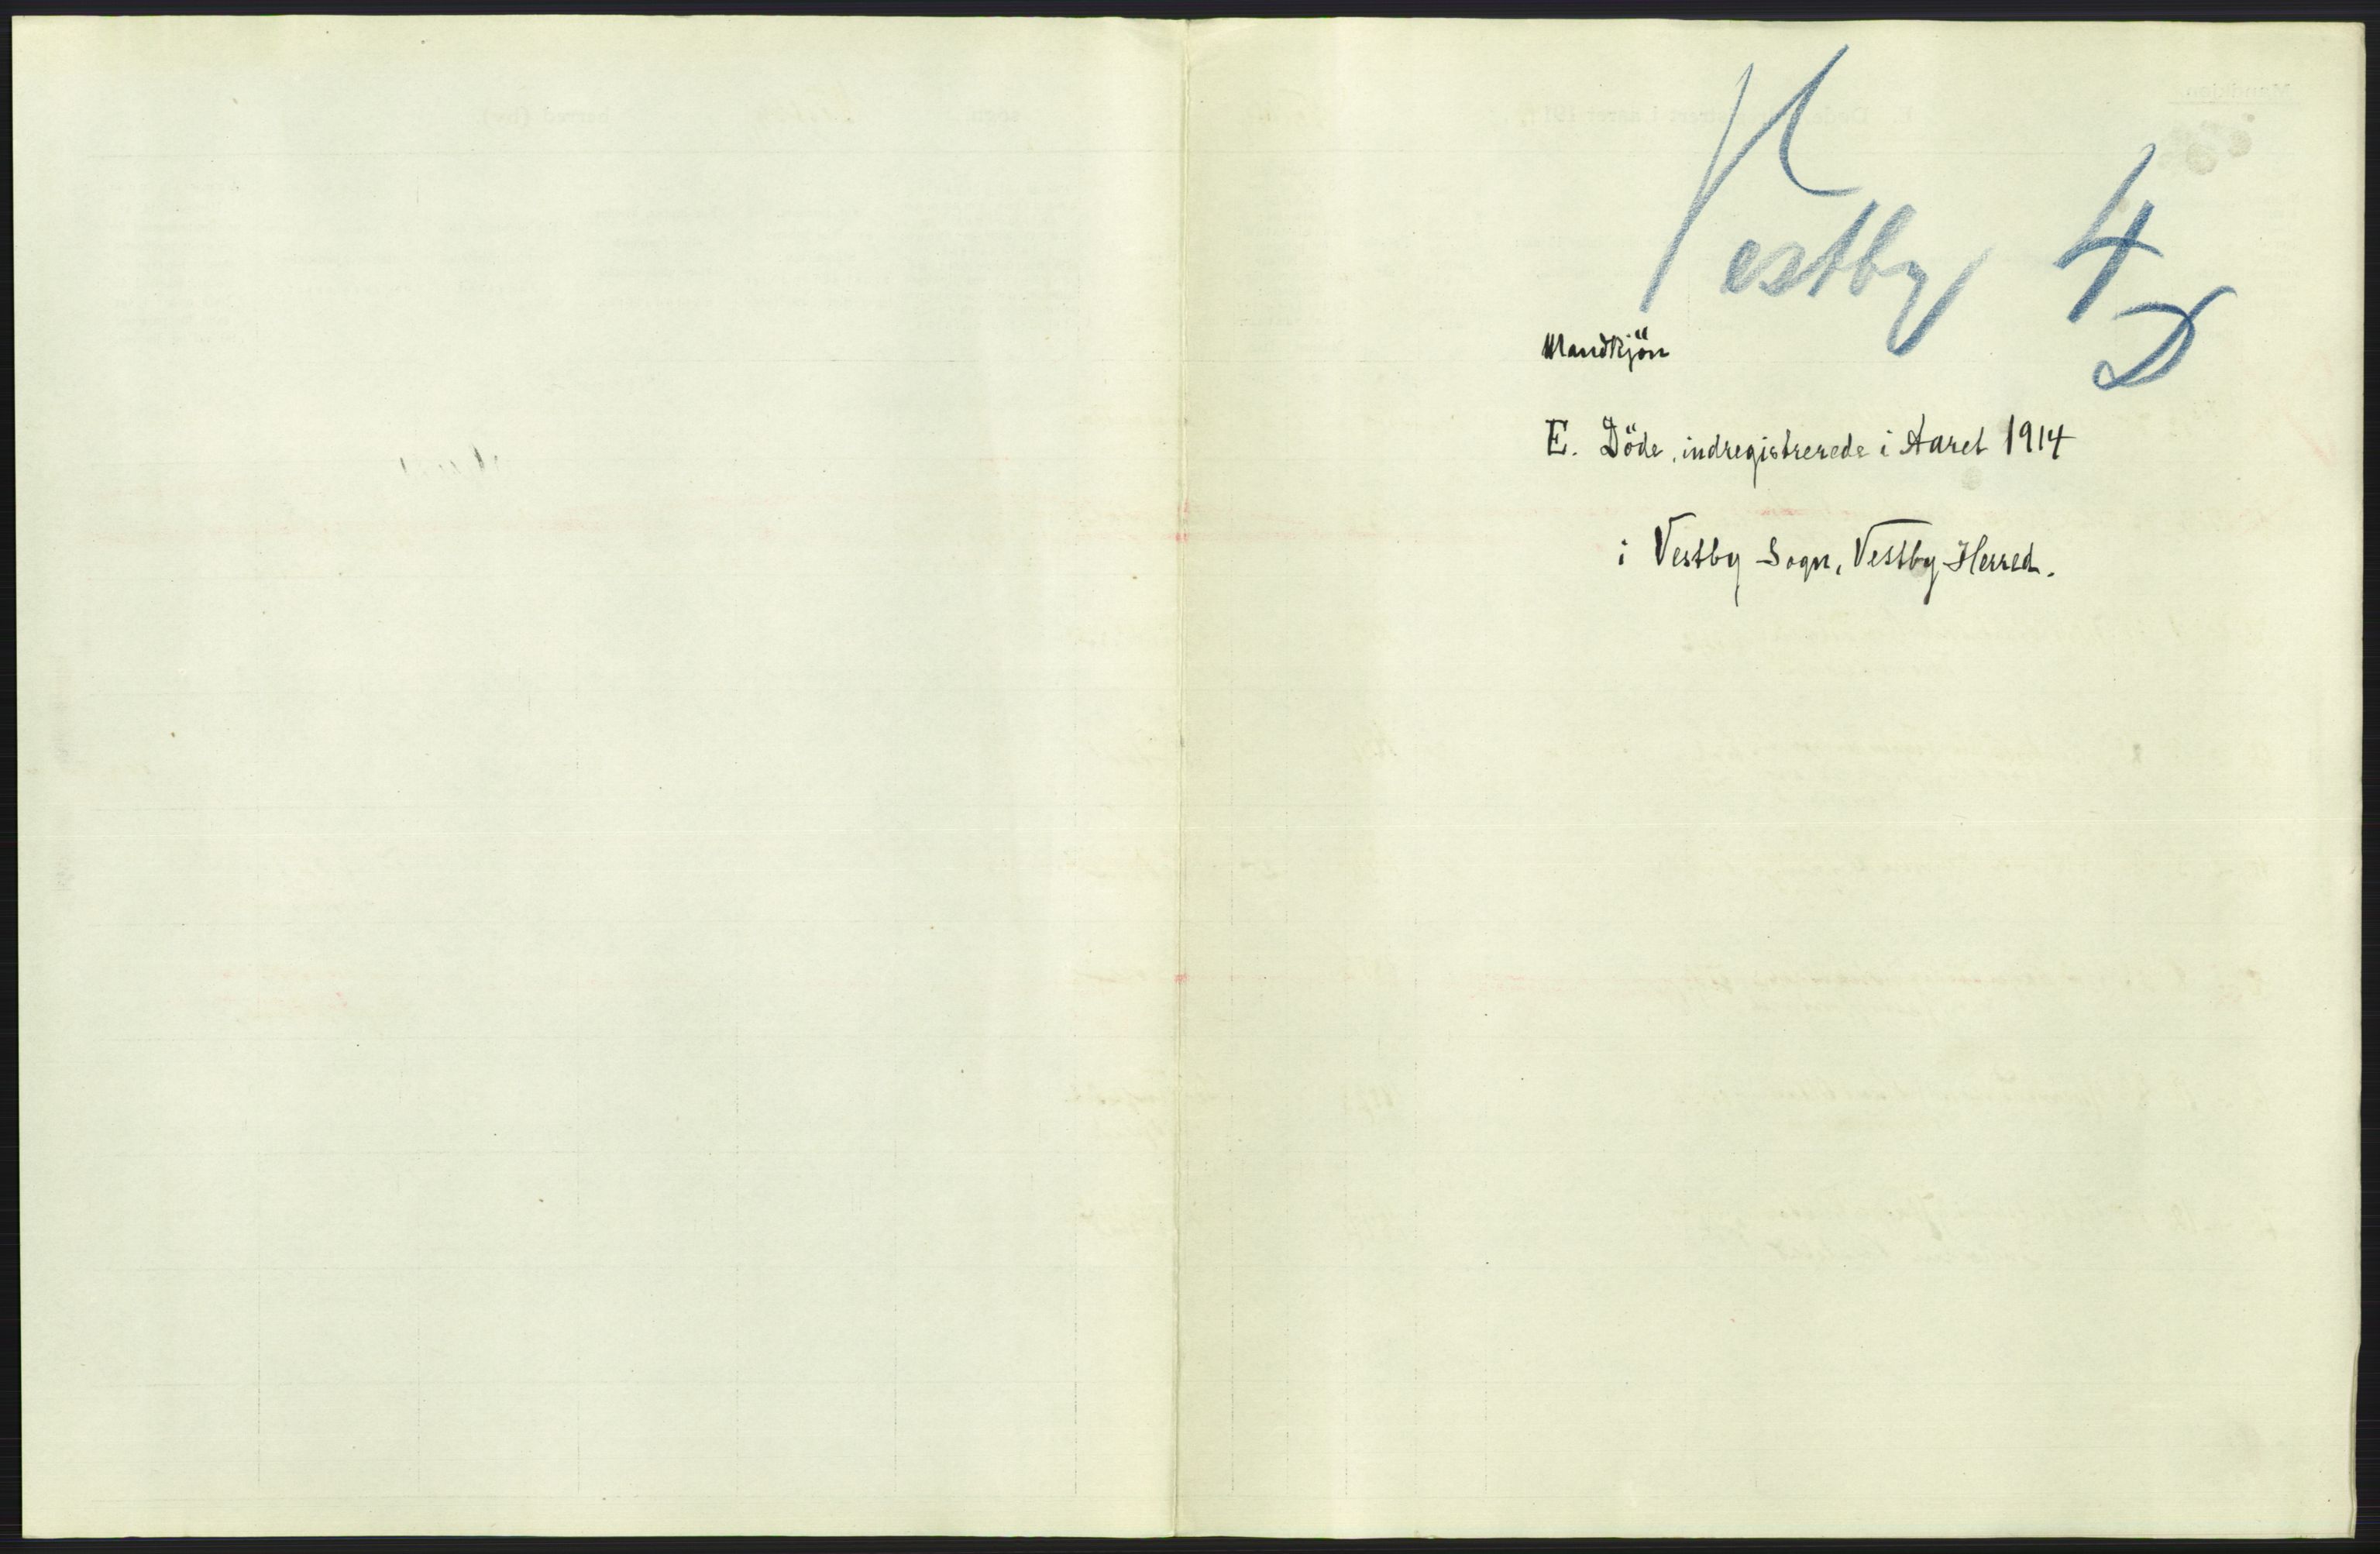 Vestby 4
D
Mandkjön
E. Döde, indregistrerede i Aaret 1914
i Vestby Sogn, Vestby Herred.